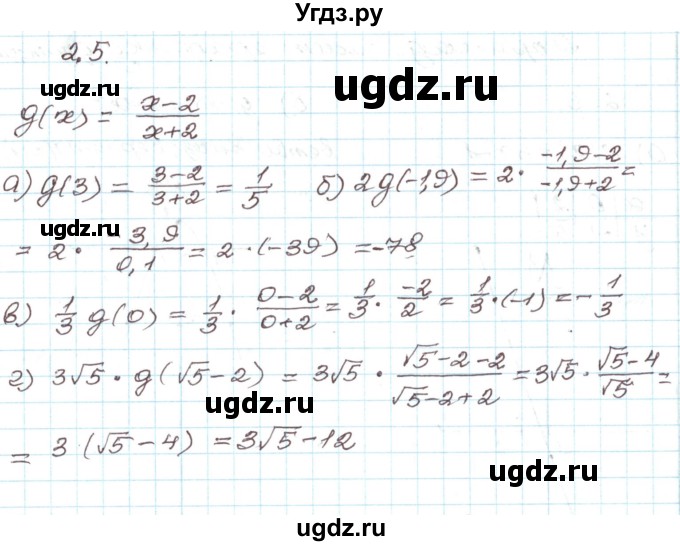 Угдз.ру
2,5.
ugdz.ru
ugdz.ru
g(x) = \frac{x-2}{x+2}
а) g(3) = \frac{3-2}{3+2} = \frac{1}{5} б) 2g(-1,9) = 2 · \frac{-1,9-2}{-1,9+2} =
= 2 · \frac{3,9}{0,1} = 2 · (-39) = -78
ugdz.ru
ugdz.ru
в) \frac{1}{3} g(0) = \frac{1}{3} · \frac{0-2}{0+2} = \frac{1}{3} · \frac{-2}{2} = \frac{1}{3} · (-1) = -\frac{1}{3}
г) 3√5 · g(√5-2) = 3√5 · \frac{√5-2-2}{√5-2+2} = 3√5 · \frac{√5-4}{√5} =
ugdz.ru
= 3(√5-4) = 3√5-12
ugdz.ru
ugdz.ru